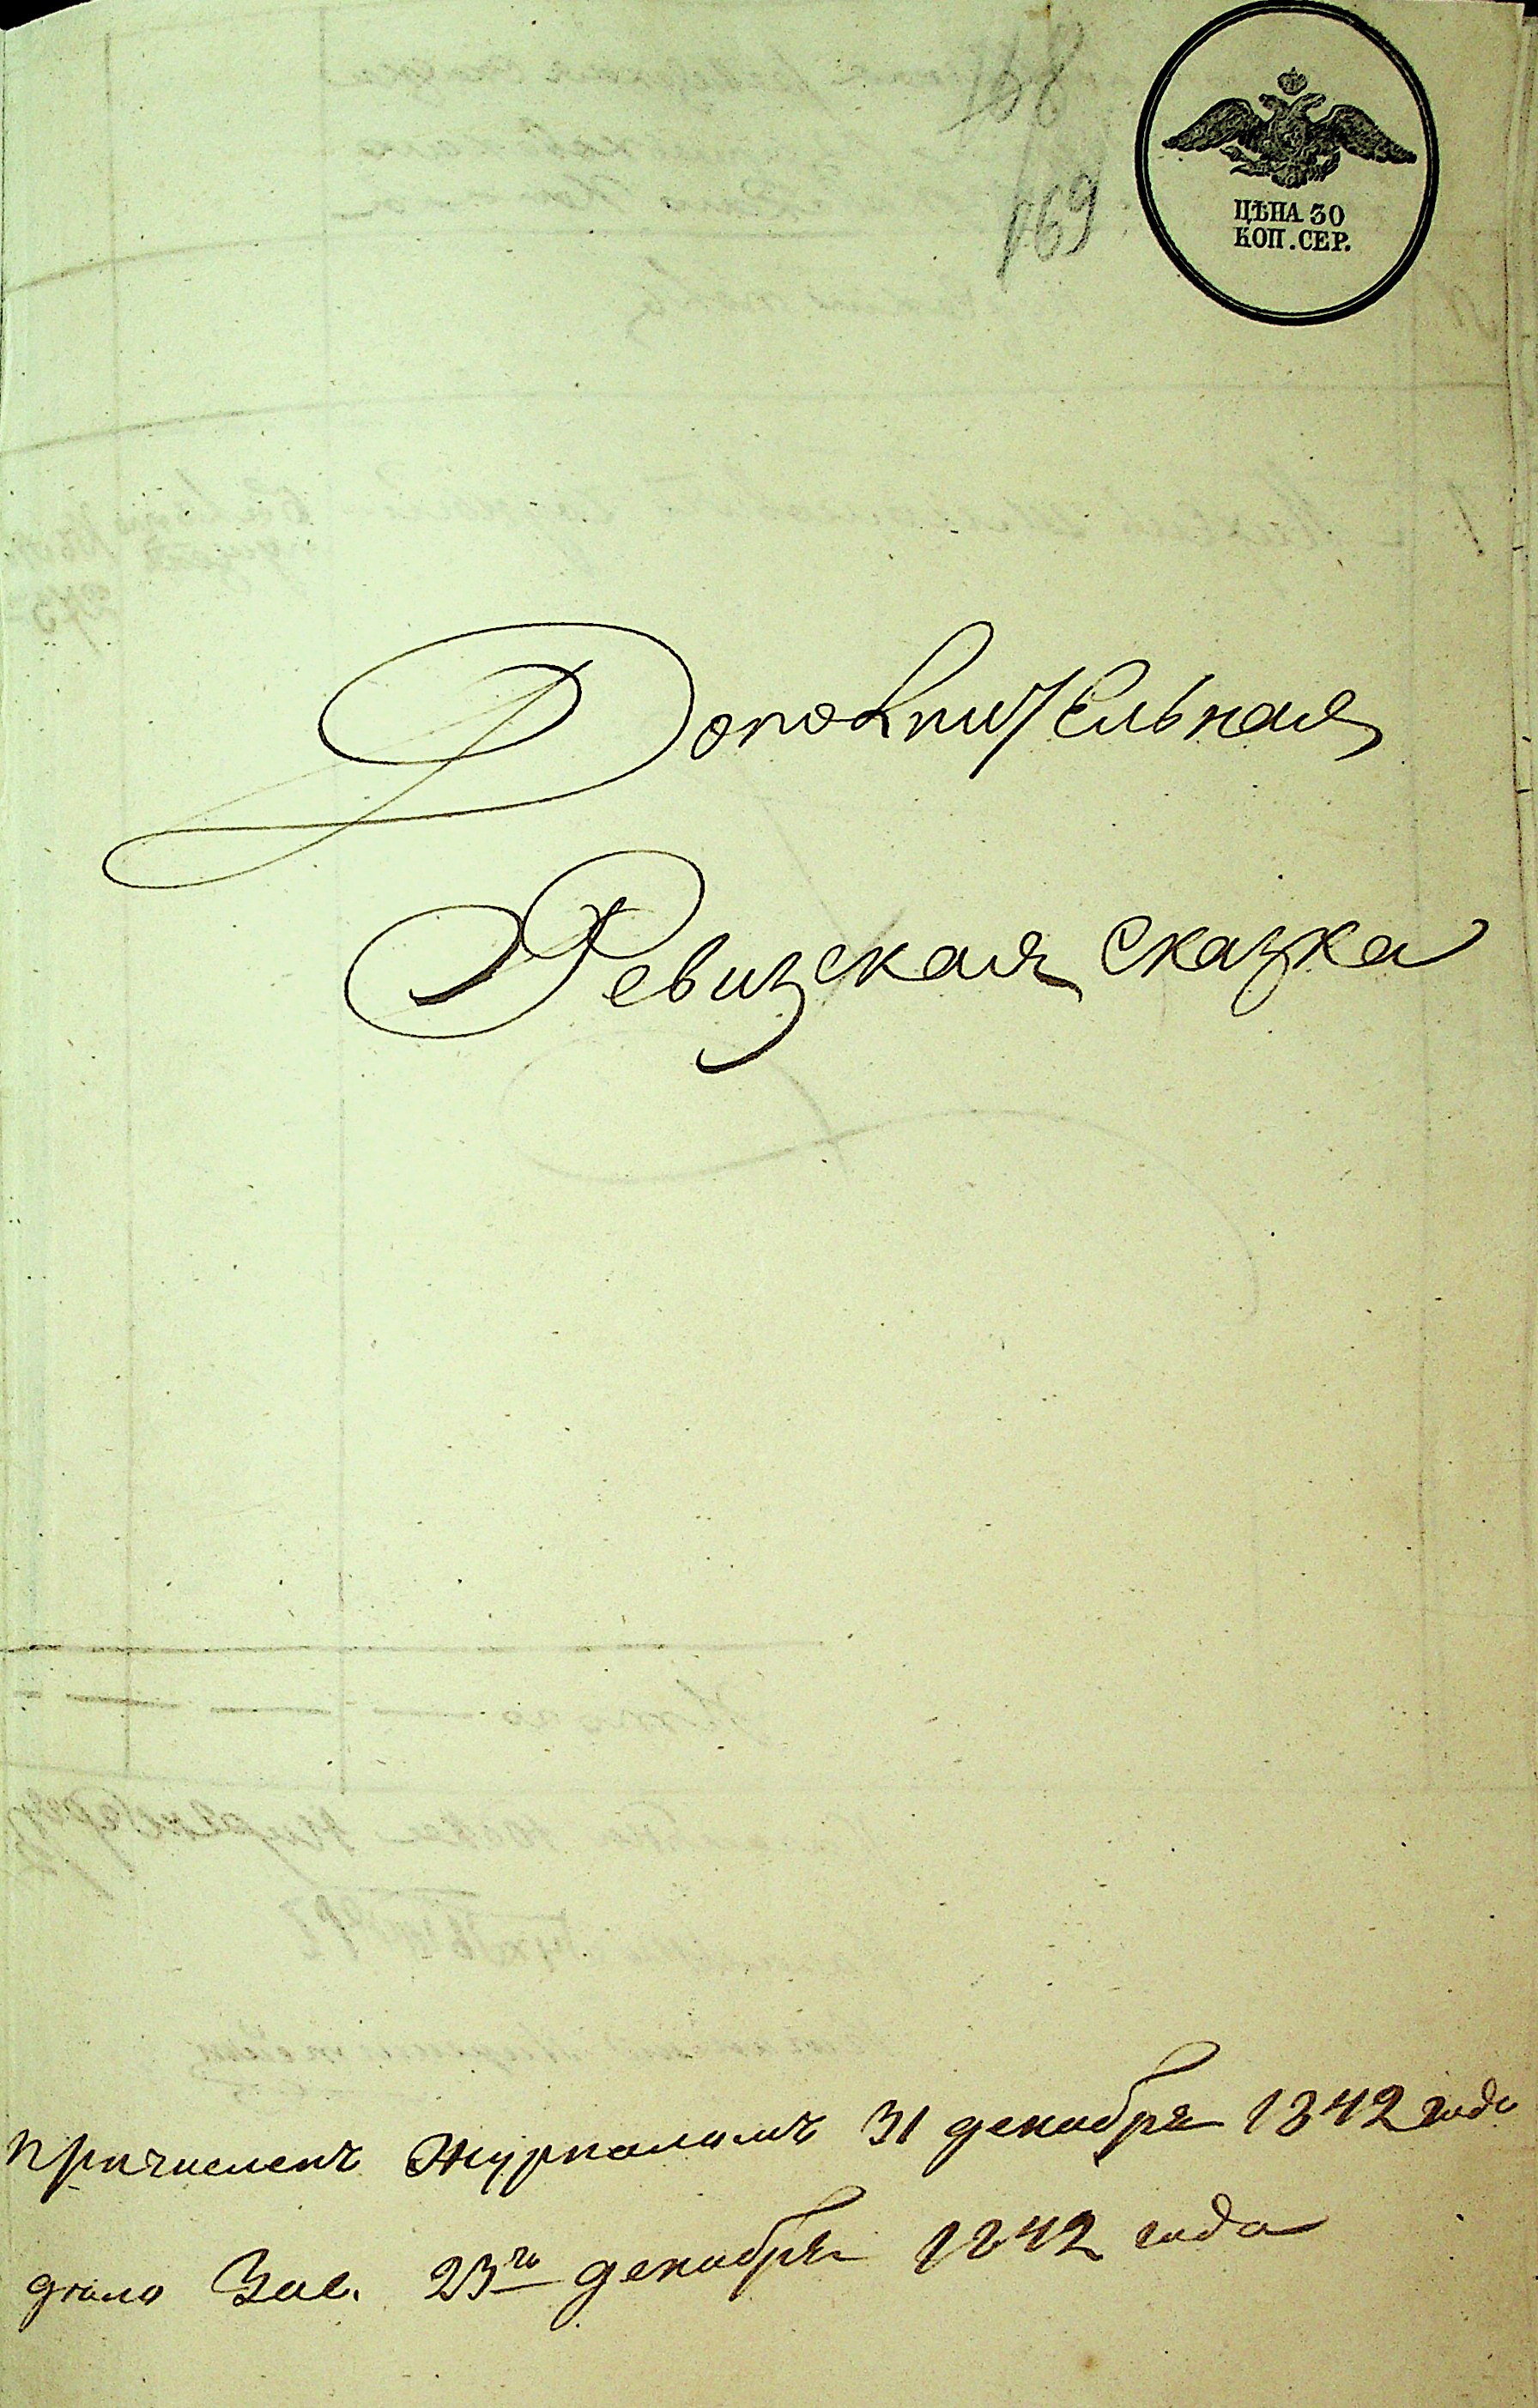 168
169
ЦѢНА 30
КОП. СЕР.
Дополнительная
Ревизская сказка
Причисленъ Журналомъ 31 декабря 1842 года
дѣло Зав. 23го декабря 1842 года